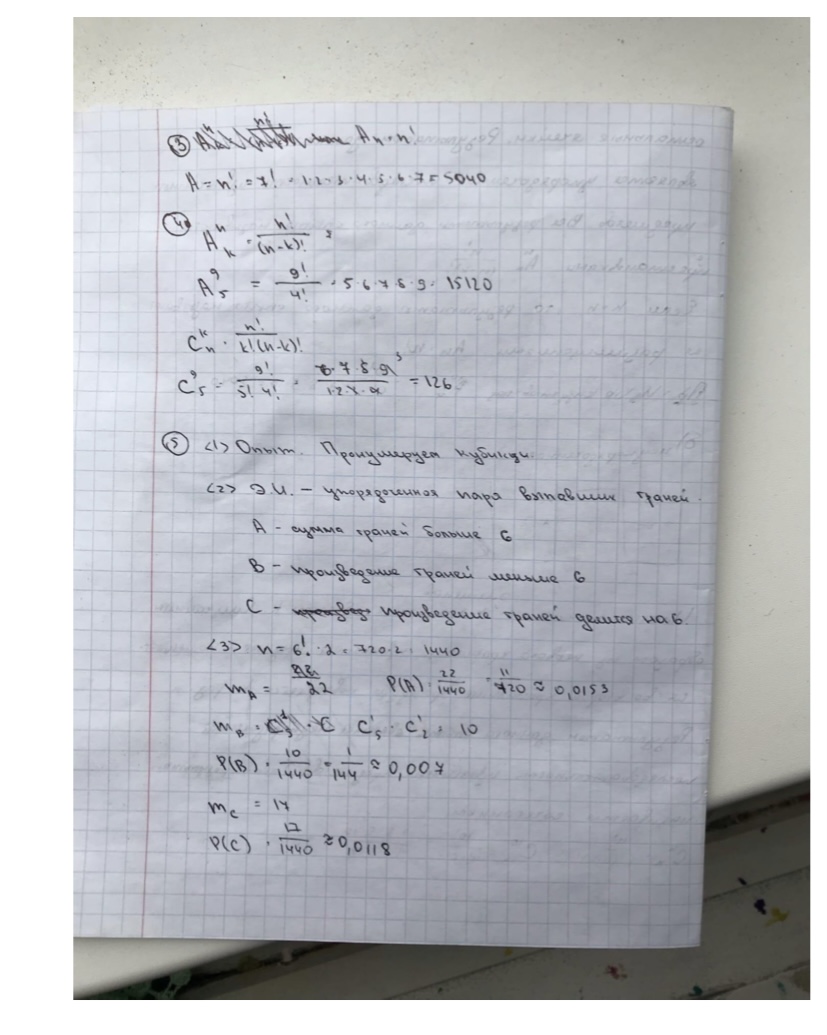 ③ Aₙ = n!
A = n! = 7! = 1·2·3·4·5·6·7 = 5040
④ Aⁿₖ = n!/(n-k)! =
A⁹₅ = 9!/4! = 5·6·7·8·9 = 15120
Cᵏₙ = n!/k!(n-k)!
C⁹₅ = 9!/5! 4! = 6·7·8·9 ³/1·2·3·4 = 126
⑤ <1> Опыт. Пронумеруем кубики.
<2> Э.И. – упорядоченная пара выпавших граней.
A – сумма граней больше 6
B – произведение граней меньше 6
C – произведение граней делится на 6.
<3> n = 6! · 2 = 720·2 = 1440
mA = 22 P(A) = 22/1440 = 11/720 ≈ 0,0153
mB = C¹₅ · C¹₂ = 10
P(B) = 10/1440 = 1/144 ≈ 0,007
mC = 17
P(C) = 17/1440 ≈ 0,0118